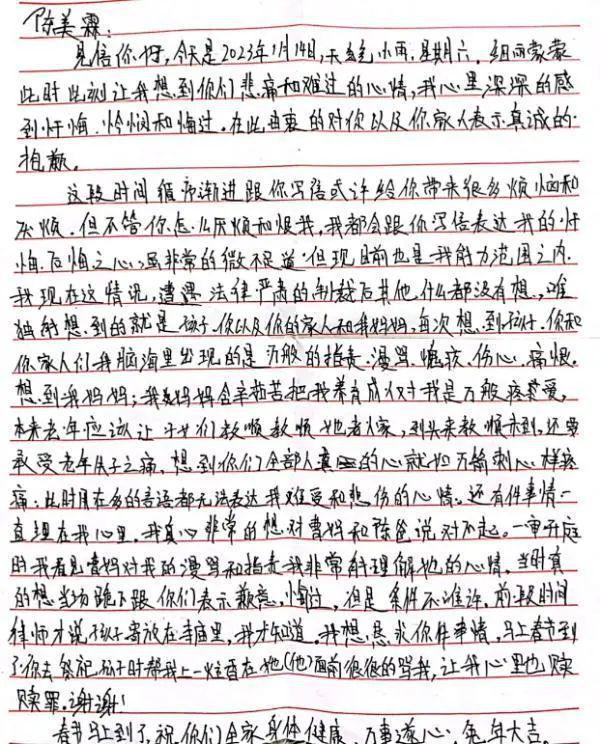 陈美霖:
见信你好,今天是2023年1月14日,天气小雨,星期六,细雨蒙蒙
此时此刻让我想到你们悲痛和难过的心情,我心里深深的感
到忏悔、怜悯和悔过。在此由衷的对你以及你家人表示真诚的
抱歉。
这段时间循序渐进跟你写信或许给你带来很多烦恼和
厌烦。但不管你怎么厌烦和恨我,我都会跟你写信表达我的忏
悔、后悔之心,虽非常的微不足道,但现目前也是我能力范围之内
我现在这情况,遭遇法律严肃的制裁后其他什么都没有想,唯
独能想到的就是孩子、你以及你的家人和我妈妈,每次想到孩子、你和
你家人们我脑海里出现的是万般的指责、漫骂、憔疾、伤心、痛恨
想到我妈妈;我妈妈含辛茹苦把我养育成人对我是万般疼爱,
本来老年应该让子女们教顺教顺她老人家,到头来教顺未到,还要
承受老年失子之痛,想到你们全部人的心就如万箭刺心样疼
痛;此时用在多的言语都无法表达我难受和悲伤的心情。还有件事情一
直埋在我心里,我真心非常的想对曹妈和陈爸说对不起。一审开庭
时我看见曹妈对我的漫骂和指责我非常能理解她的心情,当时真
的想当场跪下跟你们表示歉意,悔过,但是条件不准许,前段时间
律师才说孩子寄放在寺庙里,我才知道,我想恳求你件事情,马上春节到
了你去祭祀孩子时帮我上一炷香在她(他)面前很很的骂我,让我心里也赎
赎罪。谢谢!
春节马上到了,祝你们全家身体健康、万事遂心、兔年大吉。